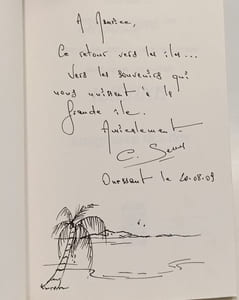 A Maurice,
Ce retour vers les îles...
vers les souvenirs qui
nous unissent à la
Grande île.
Amicalement.
Ouessant le 20.08.09